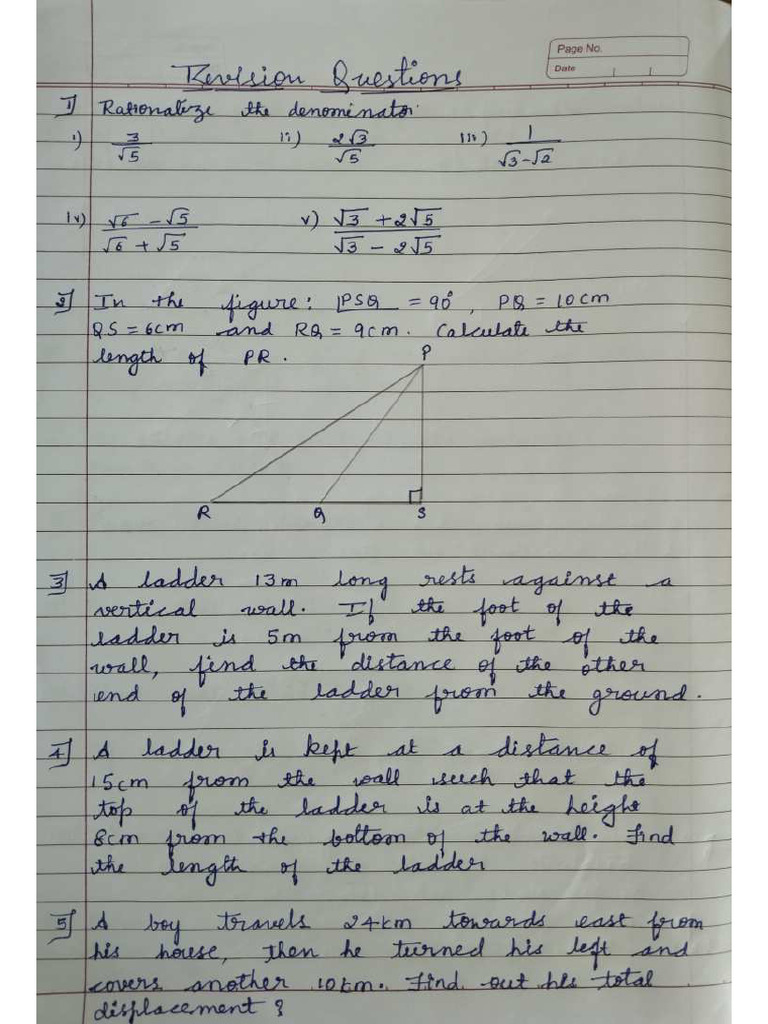 Page No.
Date
Revision Questions
1] Rationalize the denominator.
i) 3/√5 ii) 2√3/√5 iii) 1/(√3-√2)
iv) (√6 - √5)/(√6 + √5) v) (√3 + 2√5)/(√3 - 2√5)
2] In the figure: ∠PSQ = 90°, PQ = 10cm
QS = 6cm and RQ = 9cm. Calculate the
length of PR.
P
R Q S
3] A ladder 13m long rests against a
vertical wall. If the foot of the
ladder is 5m from the foot of the
wall, find the distance of the other
end of the ladder from the ground.
4] A ladder is kept at a distance of
15cm from the wall such that the
top of the ladder is at the height
8cm from the bottom of the wall. Find
the length of the ladder
5] A boy travels 24km towards east from
his house, then he turned his left and
covers another 10km. Find out his total
displacement?